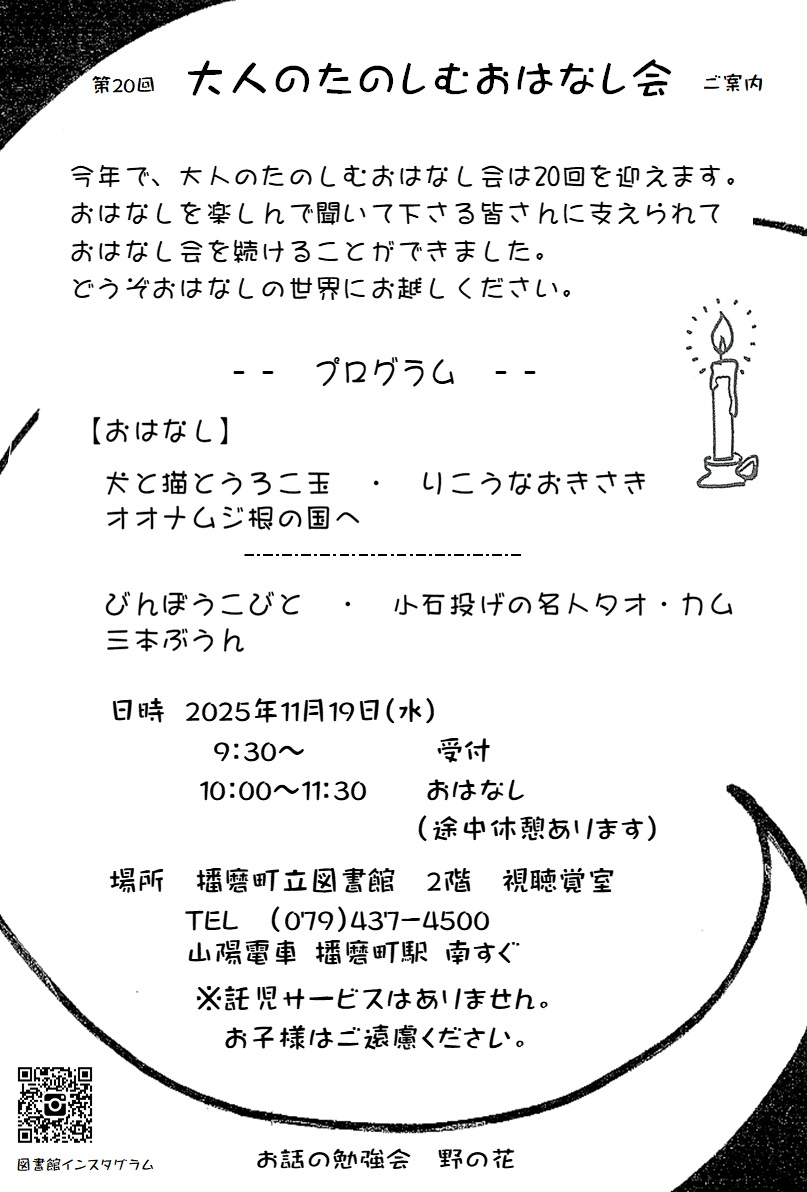 第20回 大人のたのしむおはなし会 ご案内
今年で、大人のたのしむおはなし会は20回を迎えます。
おはなしを楽しんで聞いて下さる皆さんに支えられて
おはなし会を続けることができました。
どうぞおはなしの世界にお越しください。
-- プログラム --
【おはなし】
犬と猫とうろこ玉 ・ りこうなおきさき
オオナムジ根の国へ
びんぼうこびと ・ 小石投げの名人タオ・カム
三本ぶうん
日時 2025年11月19日(水)
9:30～ 受付
10:00～11:30 おはなし
(途中休憩あります)
場所 播磨町立図書館 2階 視聴覚室
TEL (079)437-4500
山陽電車 播磨町駅 南すぐ
※託児サービスはありません。
お子様はご遠慮ください。
図書館インスタグラム
お話の勉強会 野の花